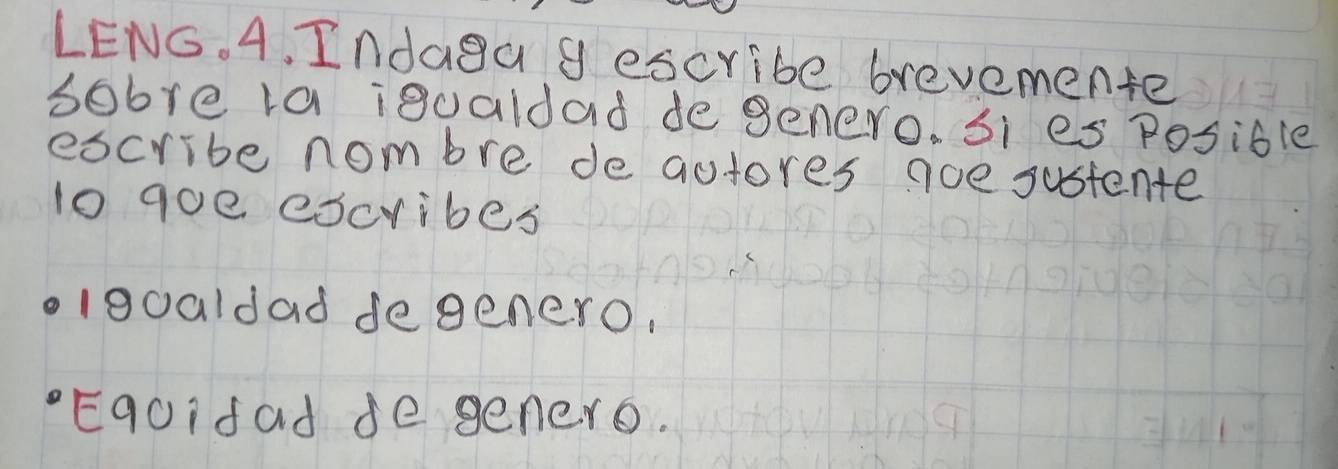 LENG.4. Indaga y escribe brevemente
sobre la igualdad de genero. Si es Posible
escribe nombre de autores que sustente
lo que escribes
• Igualdad de genero.
• Equidad de genero.